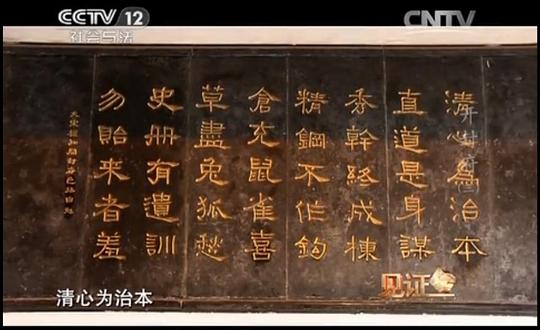 CCTV 12
社会与法
CNTV
清心為治本
直道是身謀
秀幹終成棟
精鋼不作鈎
倉充鼠雀喜
草盡兔狐愁
史册有遺訓
勿貽來者羞
见证
清心为治本